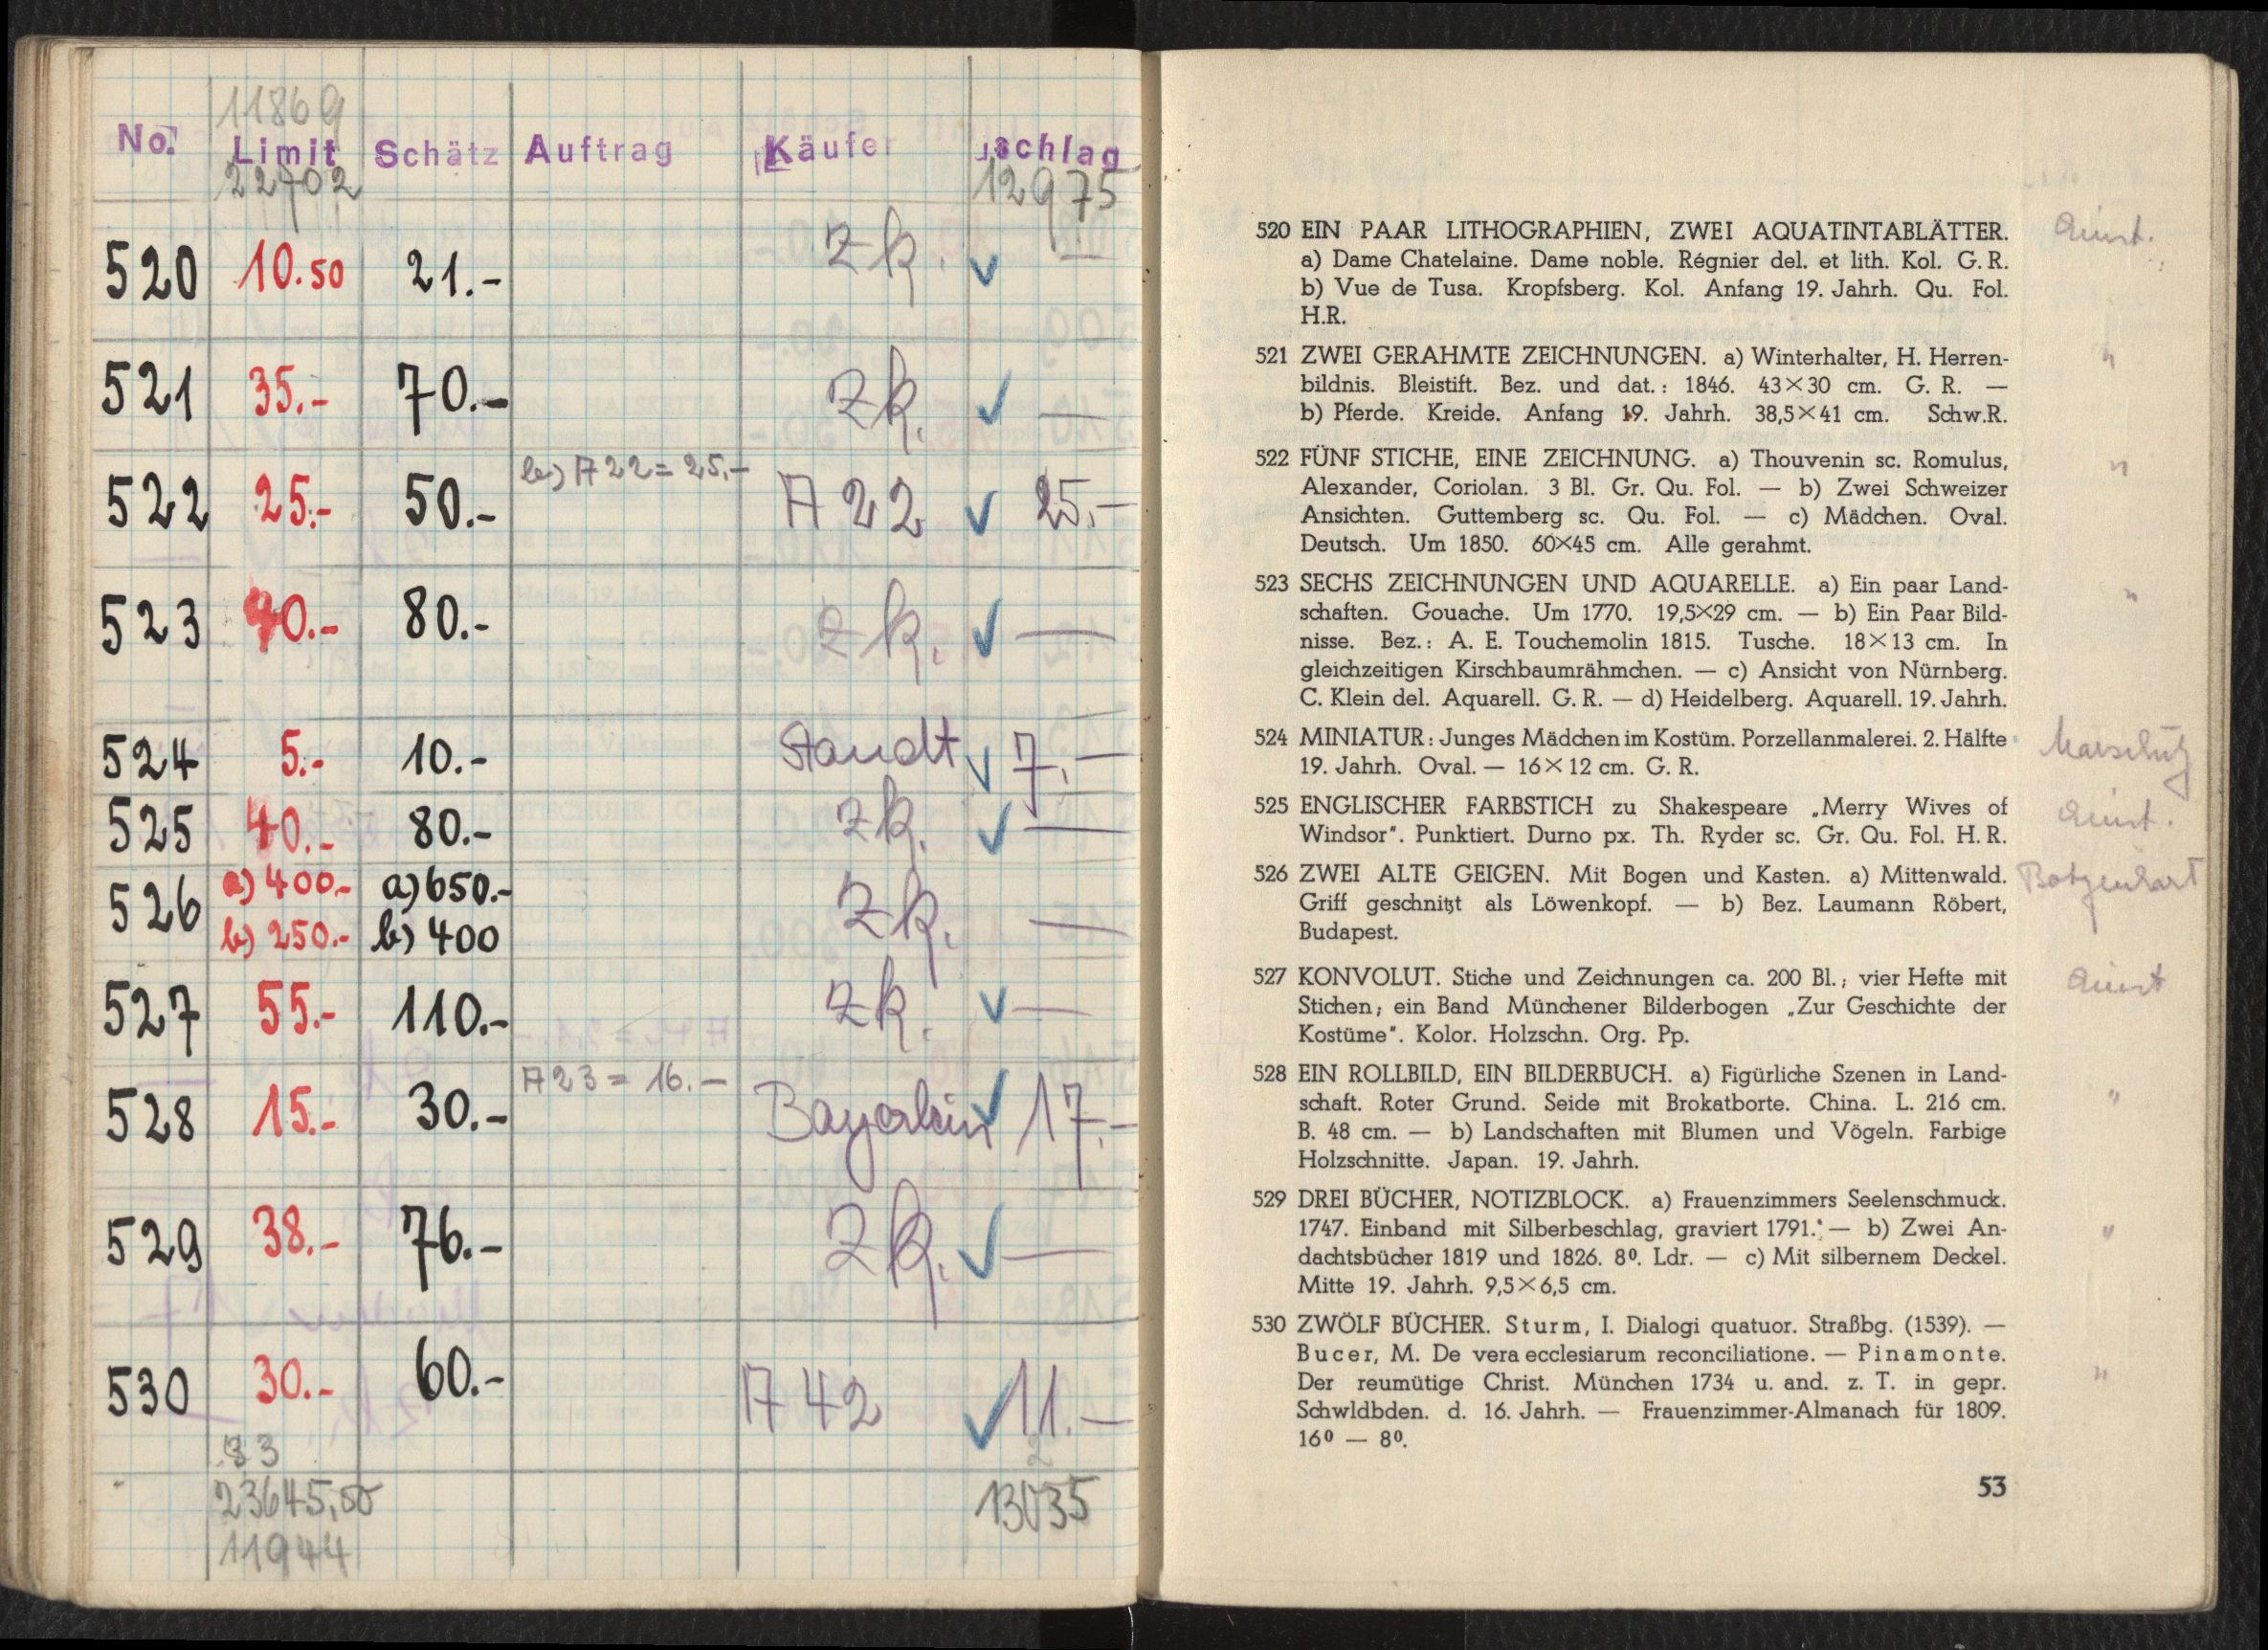 11869
No. Limit Schätz Auftrag Käufer schlag
22702 12975
520 10.50 21.- zk. —
521 35.- 70.- zk. —
b) A 22 = 25.-
522 25.- 50.- A 22 25.-
523 40.- 80.- zk. —
524 5.- 10.- Staudt 7.-
525 40.- 80.- zk. —
526 a) 400.- a) 650.- zk. —
b) 250.- b) 400
527 55.- 110.- zk. —
A 23 = 16.-
528 15.- 30.- Bayerlein 17.-
529 38.- 76.- zk. —
530 30.- 60.- A 42 11.-
33 2
23645,50 13035
11944
520 EIN PAAR LITHOGRAPHIEN, ZWEI AQUATINTABLÄTTER.
a) Dame Chatelaine. Dame noble. Régnier del. et lith. Kol. G. R.
b) Vue de Tusa. Kropfsberg. Kol. Anfang 19. Jahrh. Qu. Fol.
H.R.
521 ZWEI GERAHMTE ZEICHNUNGEN. a) Winterhalter, H. Herren- "
bildnis. Bleistift. Bez. und dat.: 1846. 43×30 cm. G. R. —
b) Pferde. Kreide. Anfang 19. Jahrh. 38,5×41 cm. Schw.R.
522 FÜNF STICHE, EINE ZEICHNUNG. a) Thouvenin sc. Romulus, "
Alexander, Coriolan. 3 Bl. Gr. Qu. Fol. — b) Zwei Schweizer
Ansichten. Guttemberg sc. Qu. Fol. — c) Mädchen. Oval.
Deutsch. Um 1850. 60×45 cm. Alle gerahmt.
523 SECHS ZEICHNUNGEN UND AQUARELLE. a) Ein paar Land- "
schaften. Gouache. Um 1770. 19,5×29 cm. — b) Ein Paar Bild-
nisse. Bez.: A. E. Touchemolin 1815. Tusche. 18×13 cm. In
gleichzeitigen Kirschbaumrähmchen. — c) Ansicht von Nürnberg.
C. Klein del. Aquarell. G. R. — d) Heidelberg. Aquarell. 19. Jahrh.
524 MINIATUR: Junges Mädchen im Kostüm. Porzellanmalerei. 2. Hälfte
19. Jahrh. Oval. — 16×12 cm. G. R.
525 ENGLISCHER FARBSTICH zu Shakespeare „Merry Wives of
Windsor". Punktiert. Durno px. Th. Ryder sc. Gr. Qu. Fol. H. R.
526 ZWEI ALTE GEIGEN. Mit Bogen und Kasten. a) Mittenwald. Botzenhart
Griff geschnitzt als Löwenkopf. — b) Bez. Laumann Röbert,
Budapest.
527 KONVOLUT. Stiche und Zeichnungen ca. 200 Bl.; vier Hefte mit
Stichen; ein Band Münchener Bilderbogen „Zur Geschichte der
Kostüme". Kolor. Holzschn. Org. Pp.
528 EIN ROLLBILD, EIN BILDERBUCH. a) Figürliche Szenen in Land- "
schaft. Roter Grund. Seide mit Brokatborte. China. L. 216 cm.
B. 48 cm. — b) Landschaften mit Blumen und Vögeln. Farbige
Holzschnitte. Japan. 19. Jahrh.
529 DREI BÜCHER, NOTIZBLOCK. a) Frauenzimmers Seelenschmuck.
1747. Einband mit Silberbeschlag, graviert 1791. — b) Zwei An- "
dachtsbücher 1819 und 1826. 8⁰. Ldr. — c) Mit silbernem Deckel.
Mitte 19. Jahrh. 9,5×6,5 cm.
530 ZWÖLF BÜCHER. Sturm, I. Dialogi quatuor. Straßbg. (1539). —
Bucer, M. De vera ecclesiarum reconciliatione. — Pinamonte.
Der reumütige Christ. München 1734 u. and. z. T. in gepr. "
Schwldbden. d. 16. Jahrh. — Frauenzimmer-Almanach für 1809.
16⁰ — 8⁰.
53